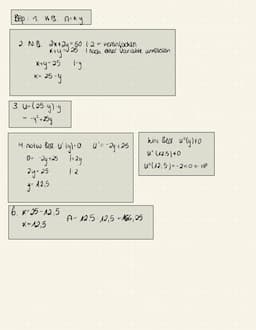 Bsp: 1. H.B. A=x·y
2. N.B. 2x+2y=50 |:2 = vereinfachen
x+y=25 | nach einer Variable umstellen
x+y=25 |-y
x=25-y
3. U=(25-y)·y
= -y²+25y
4. notw. Bed. U'(y)=0 U'=-2y+25
0= -2y+25 |+2y
2y=25 |:2
y=12,5
hin. Bed. U''(y)≠0
U''(12,5)≠0
U''(12,5)=-2<0 =
6. x=25-12,5
x=12,5
A= 12,5·12,5=156,25